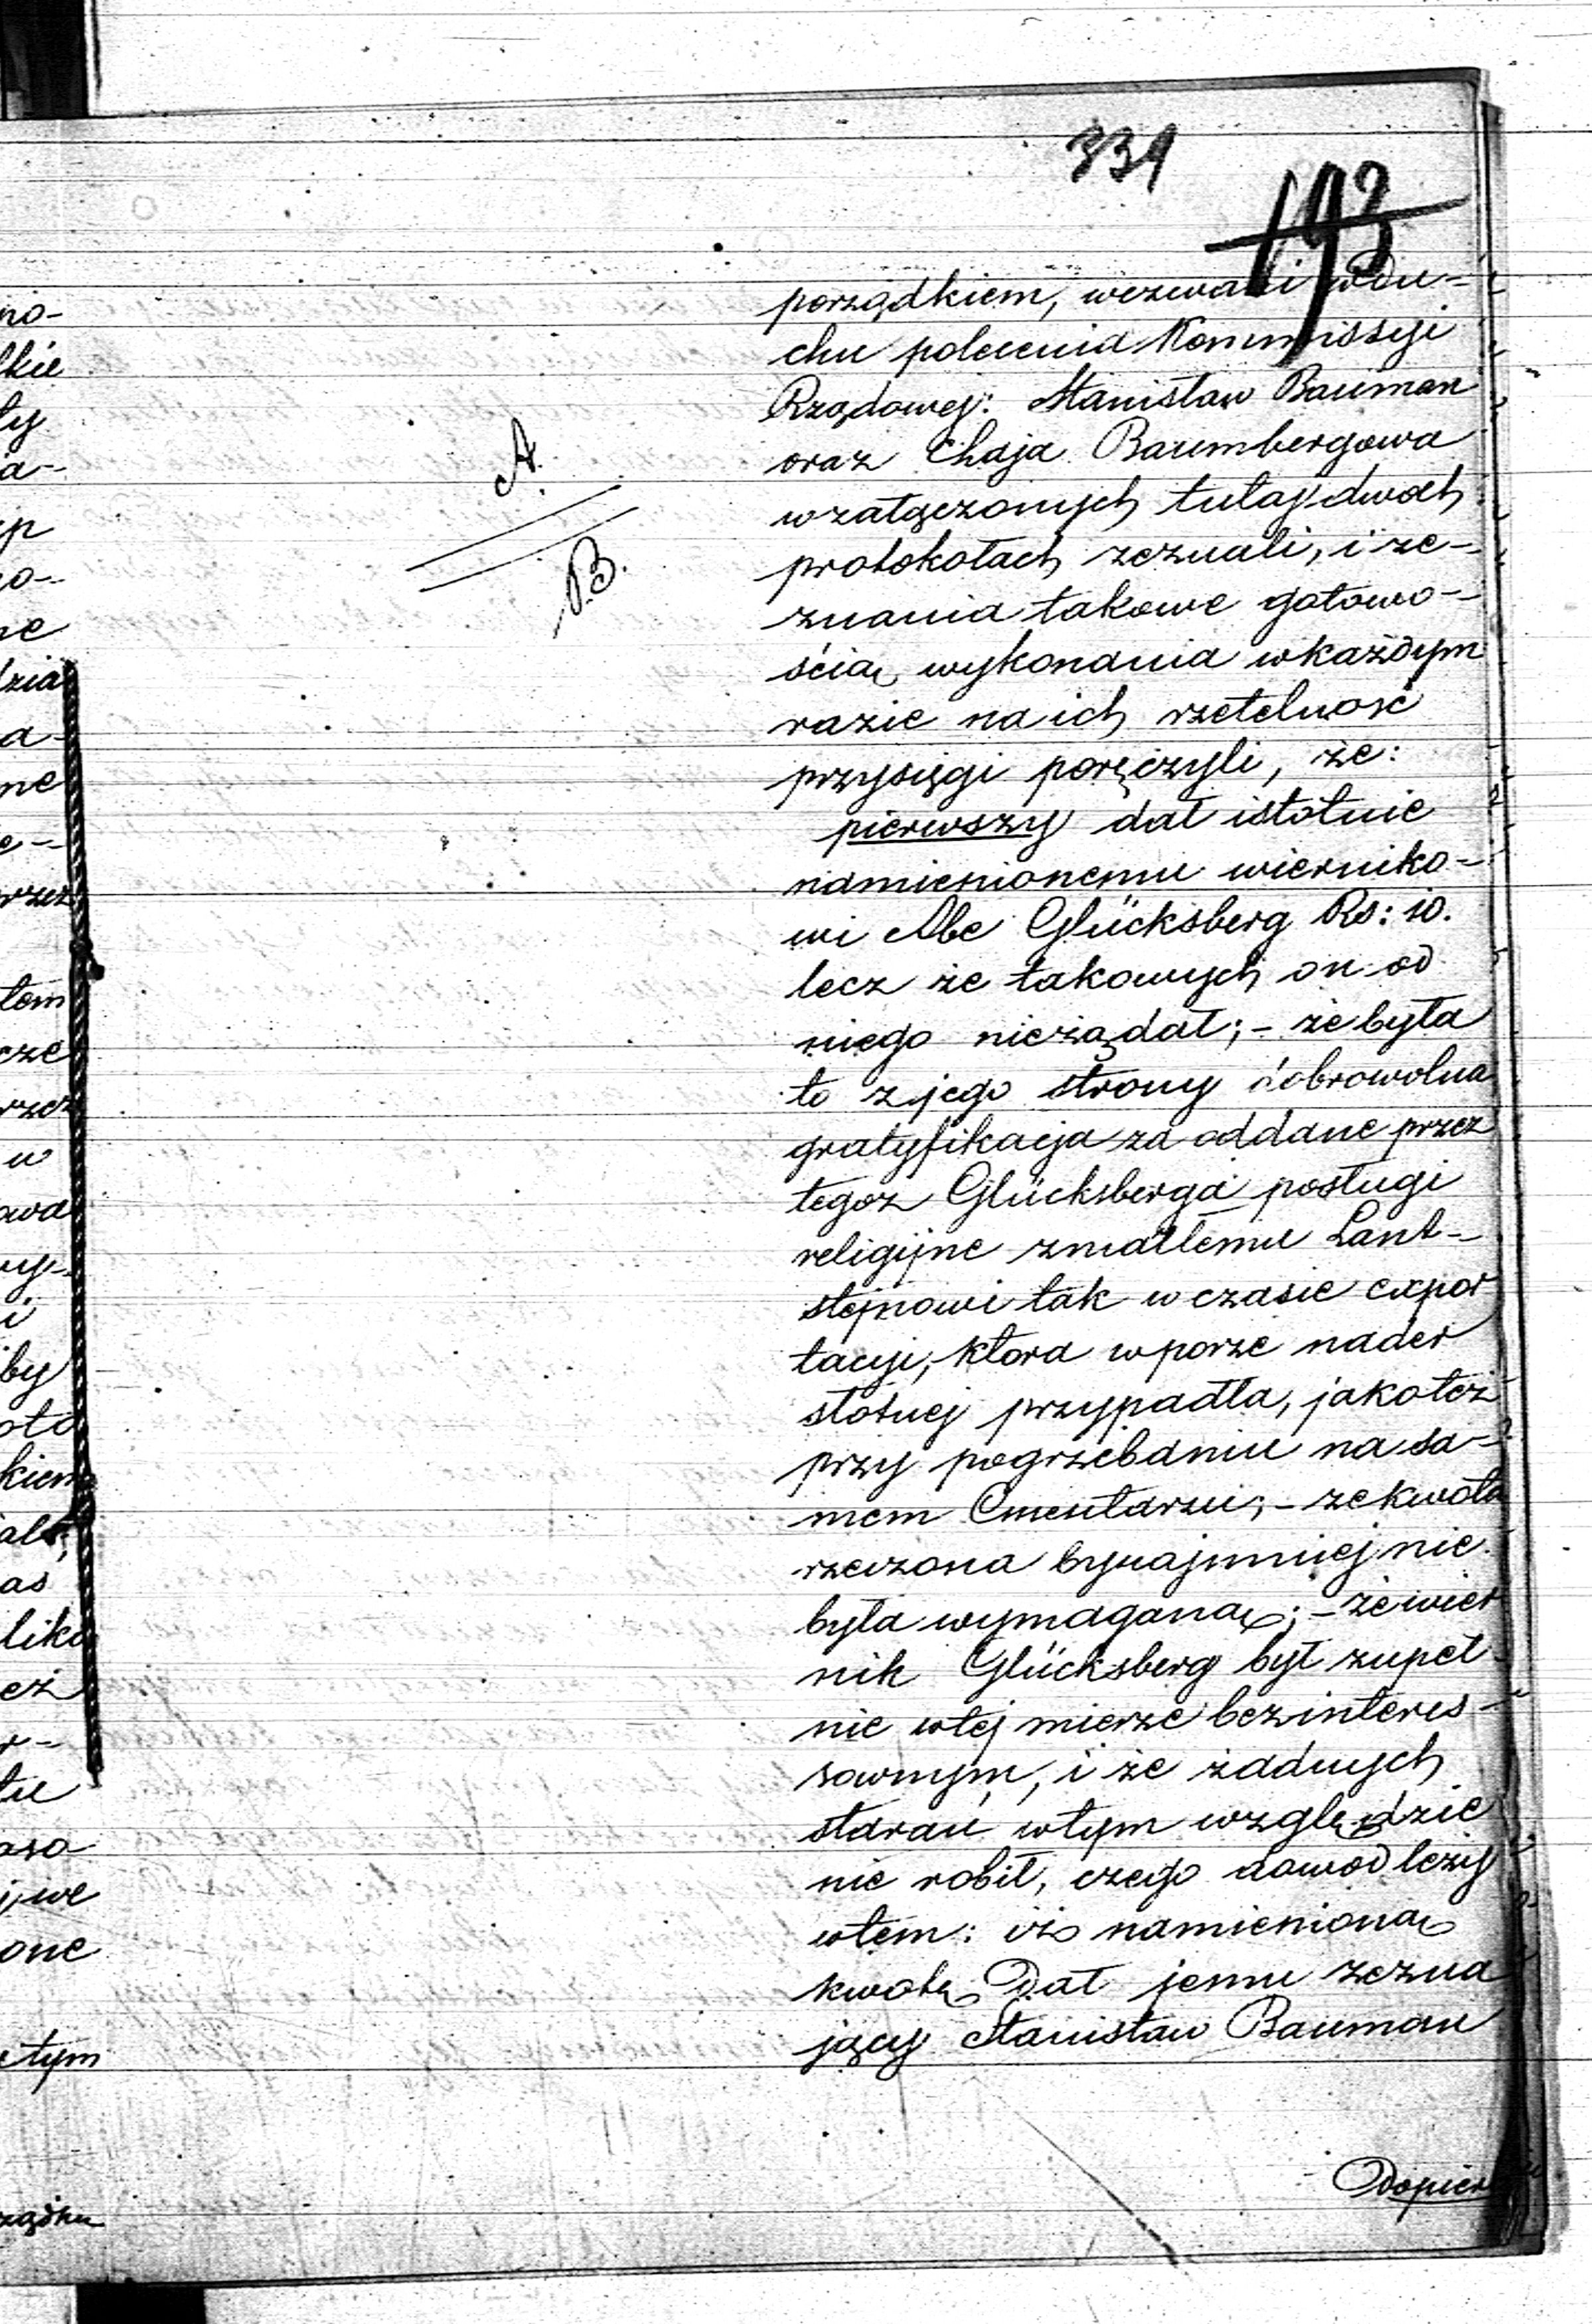 339
193
porządkiem, wezwani w du-
chu polecenia Kommissyi
Rządowej: Stanisław Bauman
oraz Chaja Baumbergowa
w załączonych tutaj dwóch
protokołach zeznali, i ze-
znania takowe gotowo-
ścią wykonania w każdym
razie na ich rzetelność
przysięgi poręczyli, że:
pierwszy dał istotnie
namienionemu wierniko-
wi Abe Glücksberg Rs: 10.
lecz że takowych on od
niego nieżądał; – że była
to z jego strony dobrowolna
gratyfikacja za oddane przez
tegoż Glücksberga posługi
religijne zmarłemu Lant-
stejnowi tak w czasie expor
tacyi, która w porze nader
słotnej przypadła, jakoteż
przy pogrzebaniu na sa-
mem Cmentarzu; – że kwota
rzeczona bynajmniej nie
była wymaganą; – że wier
nik Glücksberg był zupeł
nie w tej mierze bezinteres-
sownym, i że żadnych
starań w tym względzie
nie robił, czego dowód leży
w tem: iż namienioną
kwotę Dał jemu zezna
jący Stanisław Bauman
Dopier
A.
B.
no-
tkie
ty
a-
ne
a-
ne
e-
rzez
tem
cze
rzez
w
awa
i
by
kiem
as
ez
r-
tu
we
one
tym